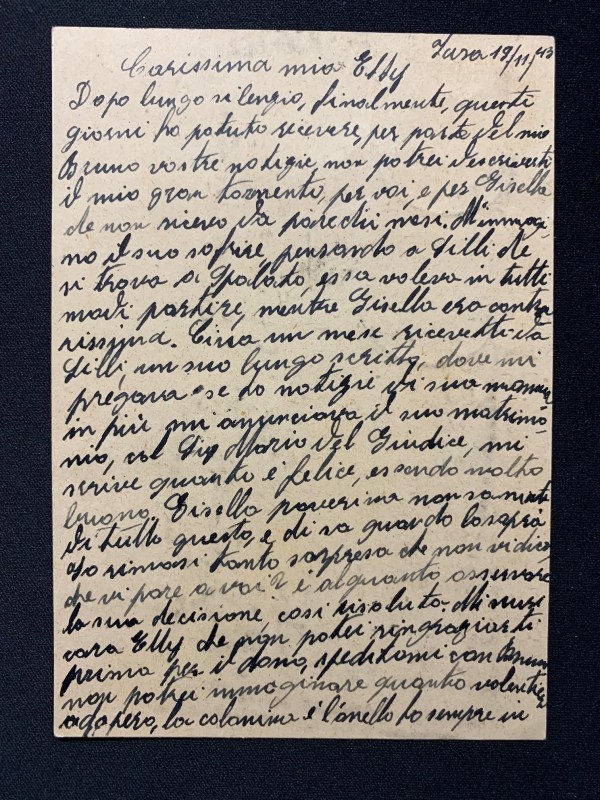 Zara 19/11/43
Carissima mia Elly
Dopo lungo silenzio, finalmente, questi
giorni ho potuto ricevere, per parte del mio
Bruno vostre notizie, non potrei descriverti
il mio gran tormento, per voi, e per Gisella
che non ricevo da parecchi mesi. M'immagi-
no il suo soffrire, pensando a Lilli che
si trova a Spalato, essa voleva in tutti
modi partire, mentre Gisella era contra
rissima. Circa un mese ricevetti da
Lilli, un suo lungo scritto, dove mi
pregava se ho notizie di sua mamma
in più mi anunciava il suo matrimo-
nio, col Sig Mario del Giudice, mi
scrive quanto è felice, essendo molto
buono. Gisella poverina non sa niente
di tutto questo, e di sa quando lo saprà
Io rimasi tanto sorpresa che non vi dico,
che vi pare a voi? è alquanto osservare
la sua decisione, così risoluta. Mi scusi
cara Elly che non potei ringraziarti
prima per il dono, speditomi con Bruno
non potrei immaginare quanto volentier
adopero, la colanina e l'anello ho sempre in